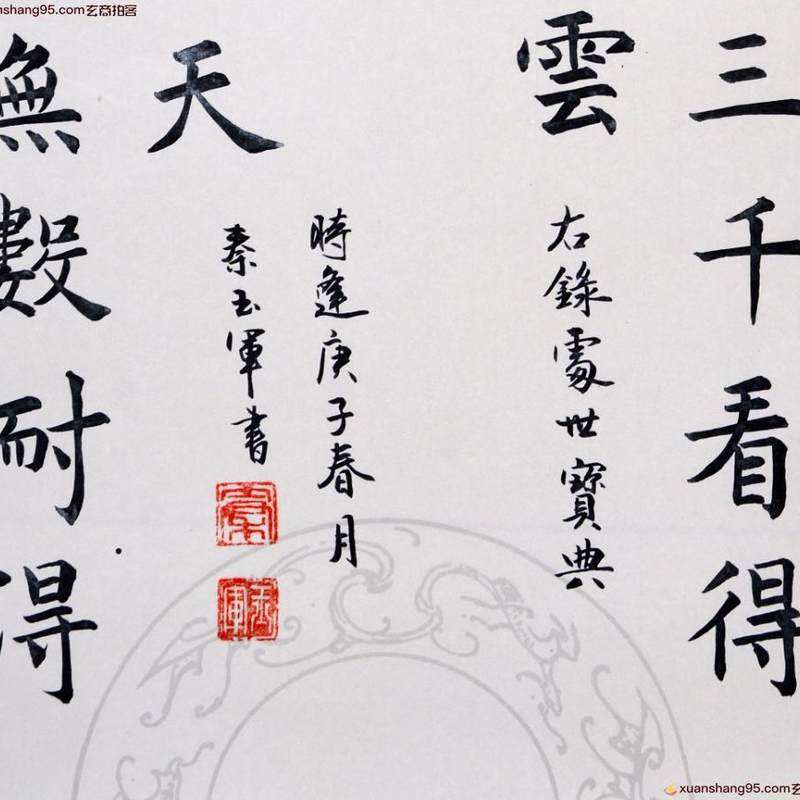 三千看得
雲
右錄處世寶典
天
時逢庚子春月
秦玉軍書
秦
玉軍
無數耐得
nshang95.com玄商拍客
xuanshang95.com玄